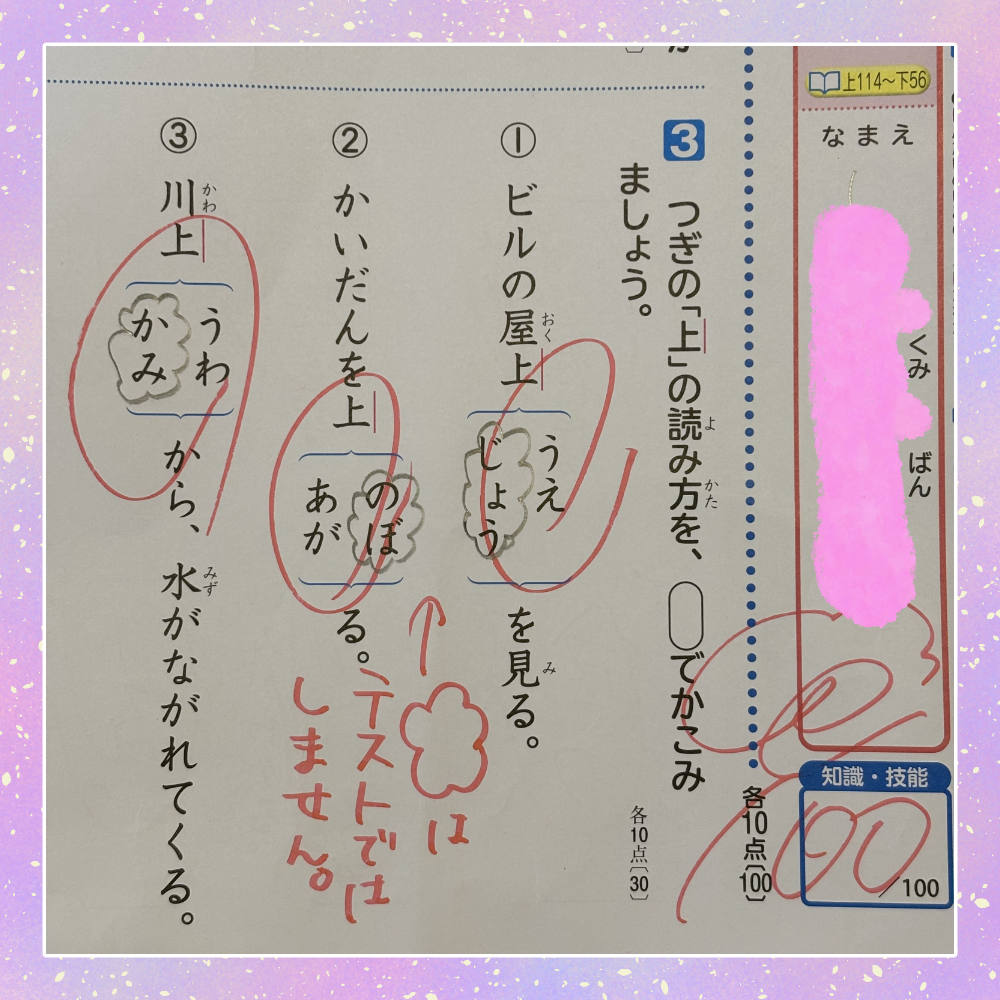 上114〜下56
なまえ
くみ
ばん
知識・技能
100
/100
各10点〔100〕
3 つぎの「上」の読み方を、 でかこみ
ましょう。
よ
かた
各10点〔30〕
① ビルの屋上
おく
うえ
じょう
を見る。
み
② かいだんを上
のぼ
あが
る。
③ 川上
かわ
うわ
かみ
から、水がながれてくる。
みず
↑
は
テストでは
しません。